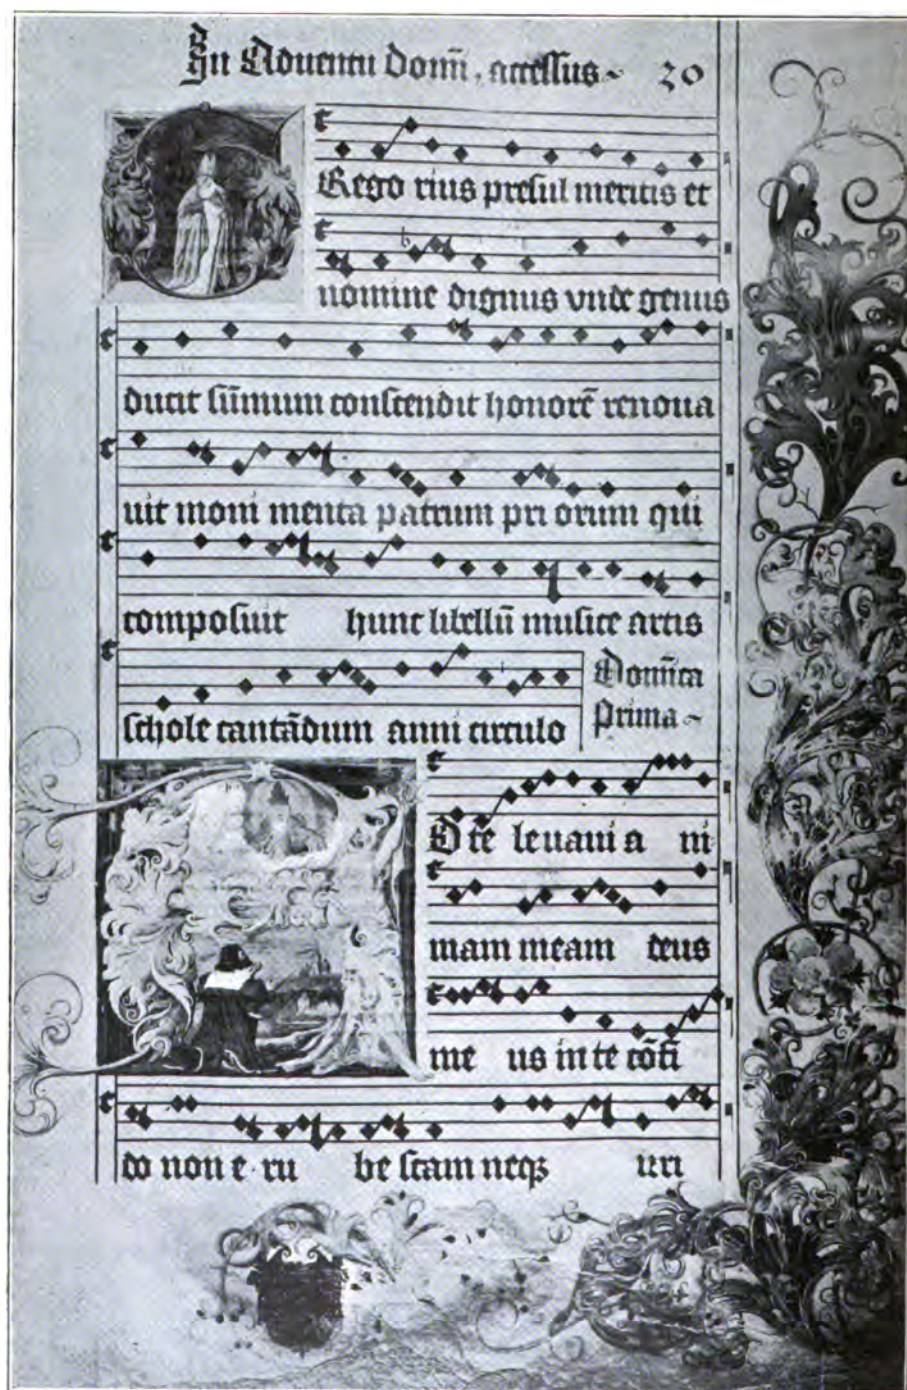 In Aduentu Domī, accessus ~ 20
GRego rius presul meritis et
nomine dignus vnde genus
ducit sūmum conscendit honorē renoua
uit moni menta patrum pri orum qui
composuit hunc libellū musice artis
schole cantādum anni circulo
Domīca
Prima ~
AD te leuaui a ni
mam meam deus
me us in te cōfi
do non e ru be scam neqz irri